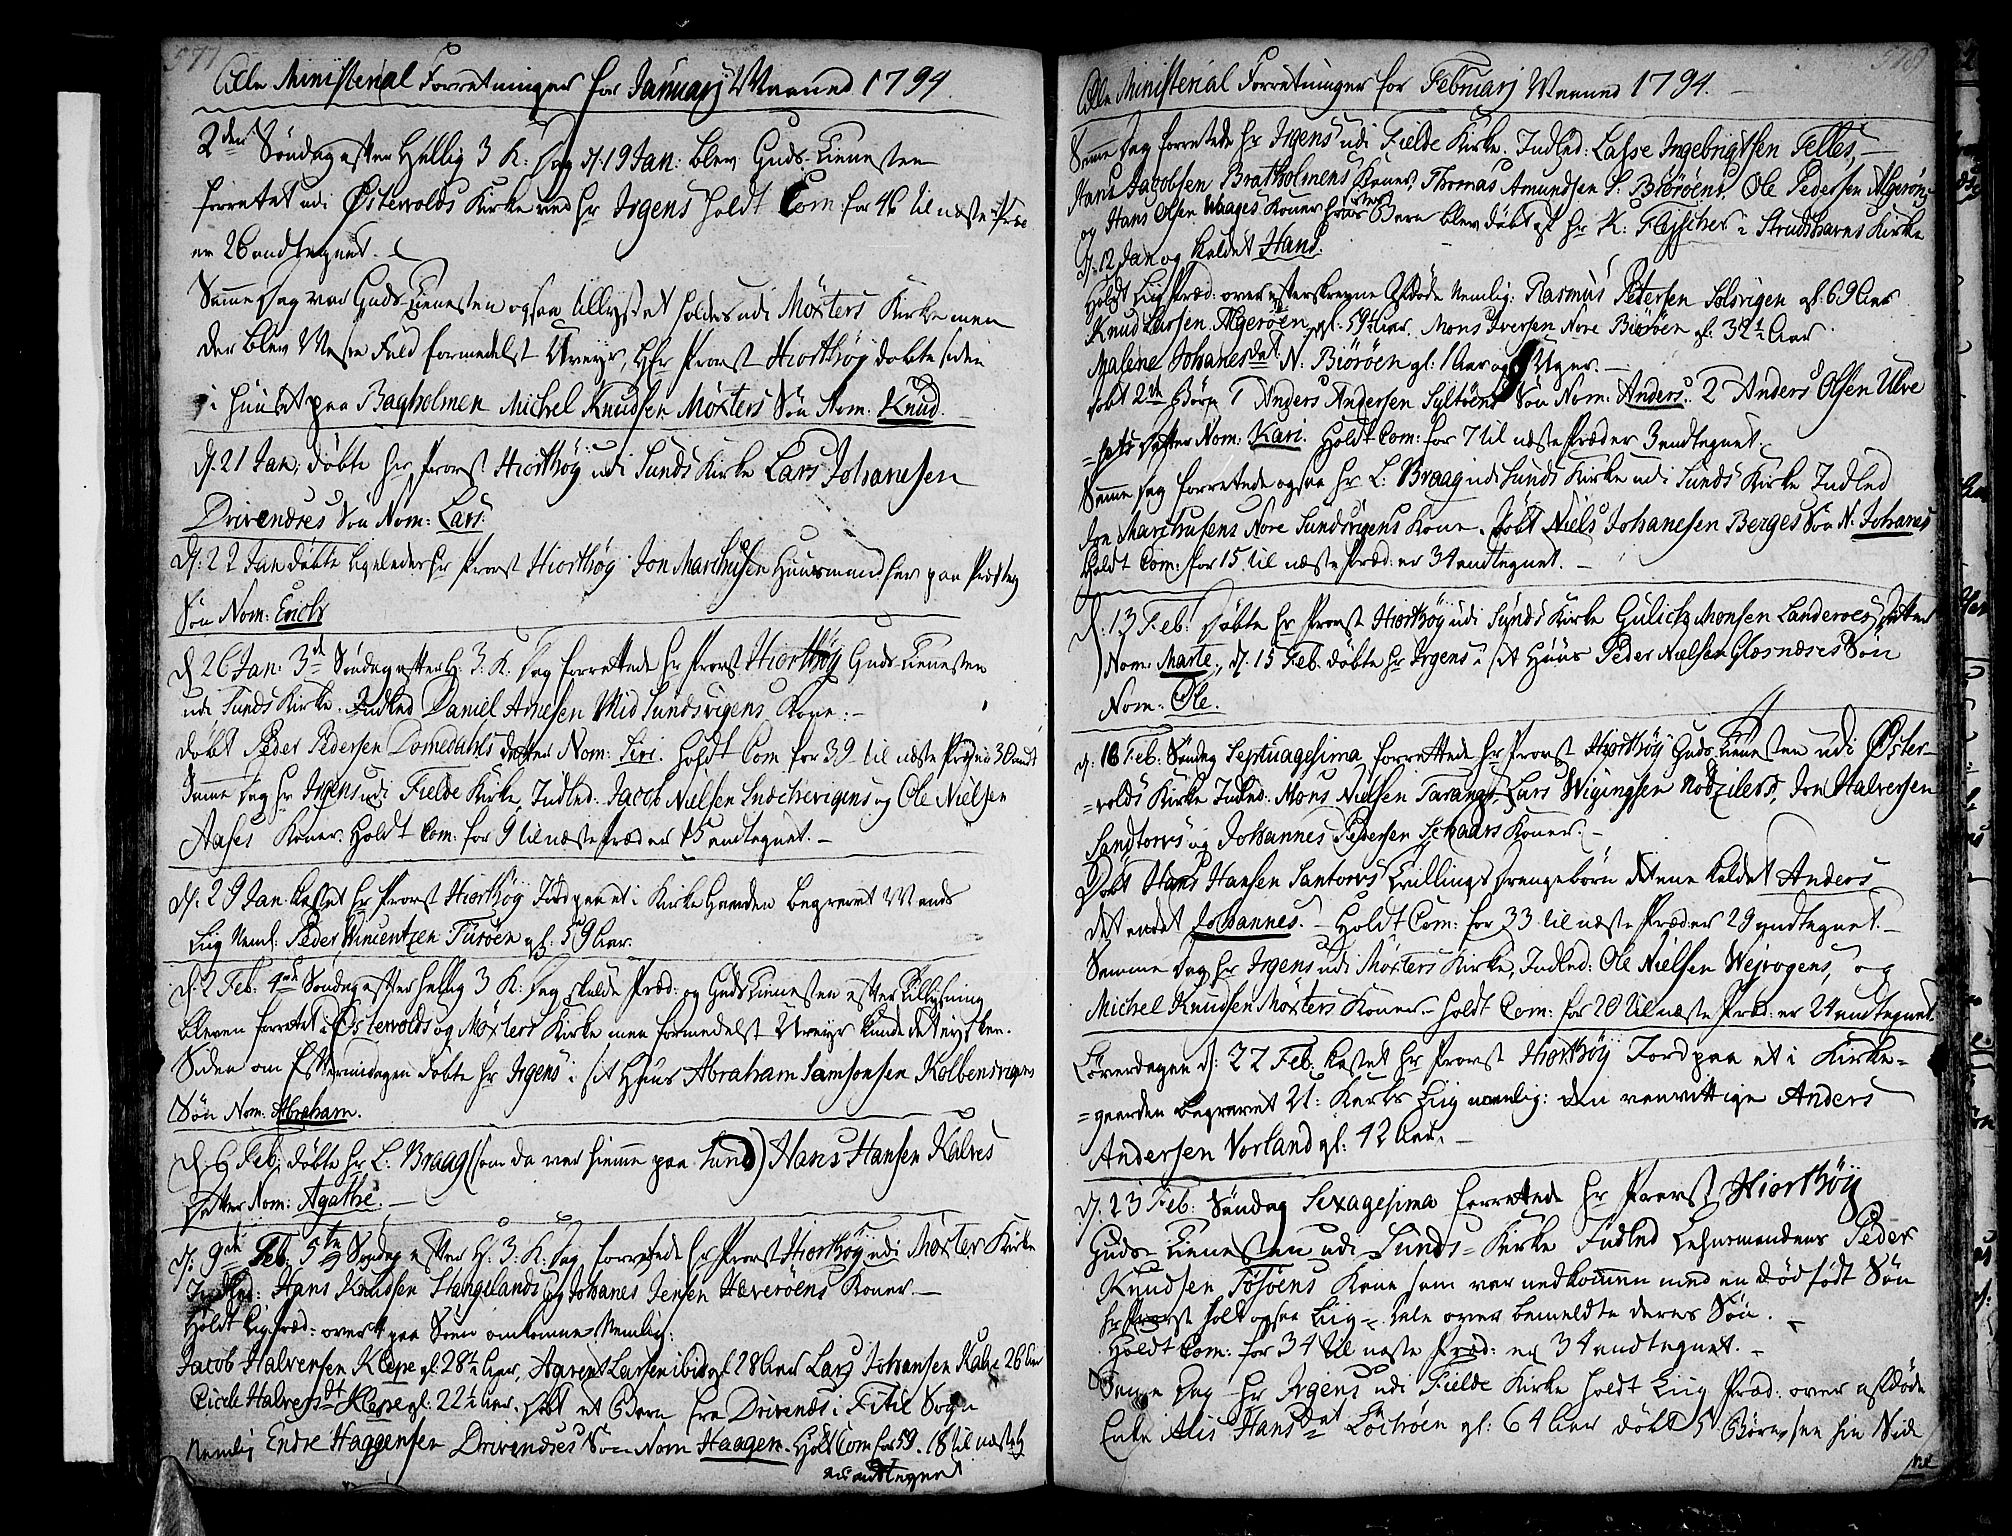 577
Alle Ministerial Forretninger for Januarj Maaned 1794.
2den Søndag efter Hellig 3 K: Dag d: 19 Jan: blev Guds-Tienesten
forretet udi Østervolds Kirke ved Hr Irgens holdt Com for 46 til næste Præd
er 26 andtegnet.
Samme Dag var Guds-Tienesten ogsaa tillyset holdes udi Møxters Kirke men
der blev Messe Fald formedelst Uveyr, Hr Provst Hiorthøy døbte siden
i Huuset paa Bagholmen Michel Knudsen Møxters Søn Nom: Knud.
d: 21 Jan: døbte Hr Provst Hiorthøy udi Sunds Kirke Lars Johanesen
Drivendses Søn Nom: Lars.
d: 22 Jan døbte ligeledes Hr Provst Hiorthøy Jon Marchusen Huusmand her paa Præsteg
Søn Nom: Erich
d 26 Jan: 3de Søndag efter H: 3: K: Dag forrettede Hr Provst Hiorthøy Guds Tienesten
udi Sunds Kirke. Indled Daniel Arnesen Mid Sundsvigens Kone:
døbt Peder Pedersen Domedahls datter Nom: Siri. holdt Com for 39 til næste Præd er 30 andt
Samme Dag Hr Irgens udi Fielde Kirke, Indled: Jacob Nielsen Snechevigens og Ole Nielsen
Aases Koner. Holdt Com: for 9 til næste Præd er 15 andtegnet.
d: 29 Jan: kastet Hr Provst Hiorthøy Jord paa et i Kirke Gaarden begravet Mands
Liig Neml: Peder Wincentzen Turøen gl: 59 Aar.
d: 2 Feb: 4de Søndag efter hellig 3 K: Dag skulde Præd: og Guds Tienesten efter Tillysning
bleven forretet i Østervolds og Møxters Kirke men formedelst Uveyr kunde det ey skee.
Siden om Eftermidagen døbte Hr Irgens i sit Huus Abraham Samsonsen Kolbensvigens
Søn Nom: Abraham.
d: 6 Feb: døbte Hr L: Braag (som da var hiemme paa Sund) Hans Hansen Kalves
Datter Nom: Agathe.
d: 9de Feb: 5te Søndag efter H: 3: K: Dag forrettede Hr Provst Hiorthøy udi Møxter Kirke
Indled: Hans Knudsen Stangelands og Johanes Jensen Hæverøens Koner.
Holdt Liig Præd: over paa Søen omkomne Nemlig:
Jacob Halversen Kleppe gl: 28½ Aar, Larsen ibid gl 28 Aar Lars Johansen Kalve 26 Aar
Cicele Halversdt Kleppe gl: 22½ Aar. døbt et Barn fra Drivends i Fitie Sogn
Nemlig Endre Haggensen Drivendses Søn Nom Haagen. Holdt Com for 59. 18 til næste
andtegnet
578
Alle Ministerial Forretninger for Februarj Maaned 1794.
Samme Dag forretede Hr Irgens udi Fielde Kirke. Indled: Lasse Ingebrigtsen Telles,
Hans Jacobsen Bratholmens Koner, Thomas Amundsen S: Biørøens, Ole Pedersen Algerøns
og Hans Olsen Waages Koner hvis Barn blev døbt af Hr K: Flejscher i Strudshavns Kirke
d: 12 Jan og kaldet Hans.
Holdt Liig Præd: over efterskrevne Afdøde Nemlig: Rasmus Petersen Solsvigen gl: 69 Aar
Knud Larsen Algerøen gl: 59½ Aar. Mons Iversen Nore Biørøen gl: 32½ Aar
Malene Johanesdat N. Biørøen gl: 1 Aar og 8 Uger.
døbt 2de Børn 1 Anders Andersen Syltøens Søn Nom: Anders. 2 Anders Olsen Ulve
=sets Datter Nom: Kari. Holdt Com: for 7 til næste Præd er 3 andtegnet.
Samme Dag forretede ogsaa Hr L: Braag udi Sunds Kirke udi Sunds Kirke Indled
Jon Marchusens Nore Sundsvigens Kone. døbt Niels Johanesen Berges Søn N: Johanes
Holdt Com: for 15 til næste Præd: er 34 andtegnet.
d: 13 Feb: døbte Hr Provst Hiorthøy udi Sunds Kirke Gulich Monsen Landeroes Datter
Nom: Marte. d: 15 Feb: døbte Hr Irgens i sit Huus Peder Nielsen Glæsnæses Søn
Nom: Ole.
d: 16 Feb: Søndag Septuagesima forrettede Hr Provst Hiorthøy Guds Tienesten udi Øster-
=volds Kirke Indled: Mons Nielsen Tarangs, Lars Wigingsen Nodzelers, Jon Halversen
Sandtorvs og Johannes Pedersen Schaars Koner.
Døbt Hans Hansen Santorvs Tvillings Drengebørn det ene kaldet Anders
det andet Johannes. Holdt Com: for 33 til næste Præd er 29 andtegnet.
Samme Dag Hr Irgens udi Møxters Kirke, Indled: Ole Nielsen Wejvogens, og
Michel Knudsen Møxters Koner. holdt Com: for 20 til næste Præd: er 24 andtegnet.
Løverdagen d: 22 Feb: kastet Hr Provst Hiorthøy Jord paa et i Kirke=
=gaarden begravet U: Karls Liig nemlig: den vanvittige Anders
Andersen Vorland gl: 42 Aar.
d: 23 Feb: Søndag Sexagesima forretede Hr Provst Hiorthøy
Guds-Tienesten udi Sunds-Kirke Indled Lehnsmandens Peder
Knudsen Tøsøens Kone som var nedkommen med en død født Søn
Hr Provst holt ogsaa Liig-Tale over bemeldte deres Søn.
Holdt Com: for 34 til næste Præd: er 34 andtegnet.
Samme Dag Hr Irgens udi Fielde Kirke holdt Liig Præd: over afdøde
Enke Alis Hansdat Løchøen gl: 64 Aar døbt 5 Børn, see hin Side